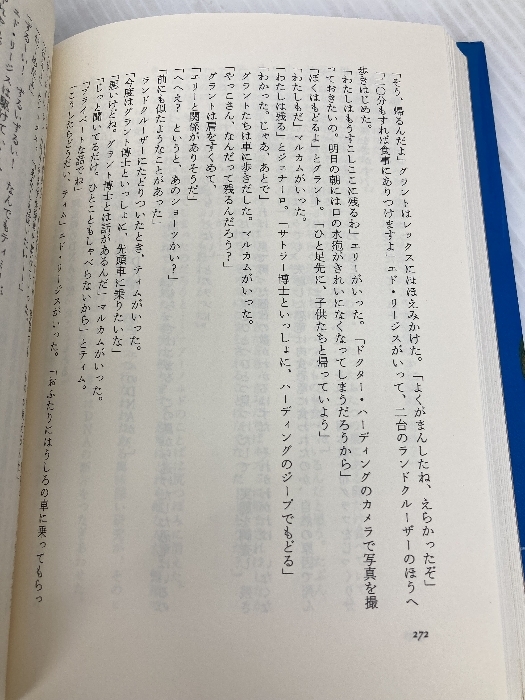 「そう、帰るんだよ」グラントはレックスにほほえみかけた。「よくがまんしたね、えらかったぞ」
「二〇分もすれば食事にありつけますよ」エド・リージスがいって、二台のランドクルーザーのほうへ
歩きはじめた。
「わたしはもうすこしここに残るわ」エリーがいった。「ドクター・ハーディングのカメラで写真を撮
っておきたいの。明日の朝には口の水疱がきれいになくなってしまうだろうから」
「ぼくはもどるよ」とグラント。「ひと足先に、子供たちと帰っていよう」
「わたしもだ」マルカムがいった。
「わたしは残る」とジェナーロ。「サトラー博士といっしょに、ハーディングのジープでもどる」
「わかった。じゃあ、あとで」
グラントたちは車に歩きだした。マルカムがいった。
「やっこさん、なんだって残るんだろう？」
グラントは肩をすくめて、
「エリーと関係がありそうだ」
「へええ？　というと、あのショーツかい？」
「前にも似たようなことがあった」
ランドクルーザーにたどりついたとき、ティムがいった。
「今度はグラント博士といっしょに、先頭車に乗りたいな」
「悪いけどね。グラント博士とは話があるんだ」マルカムがいった。
「じっと聞いてるだけ。ひとこともしゃべらないから」とティム。
「プライベートな話でね」
「こうしたらどうだい、ティム」エド・リージスがいった。「おふたりにはうしろの車に乗ってもらっ
272